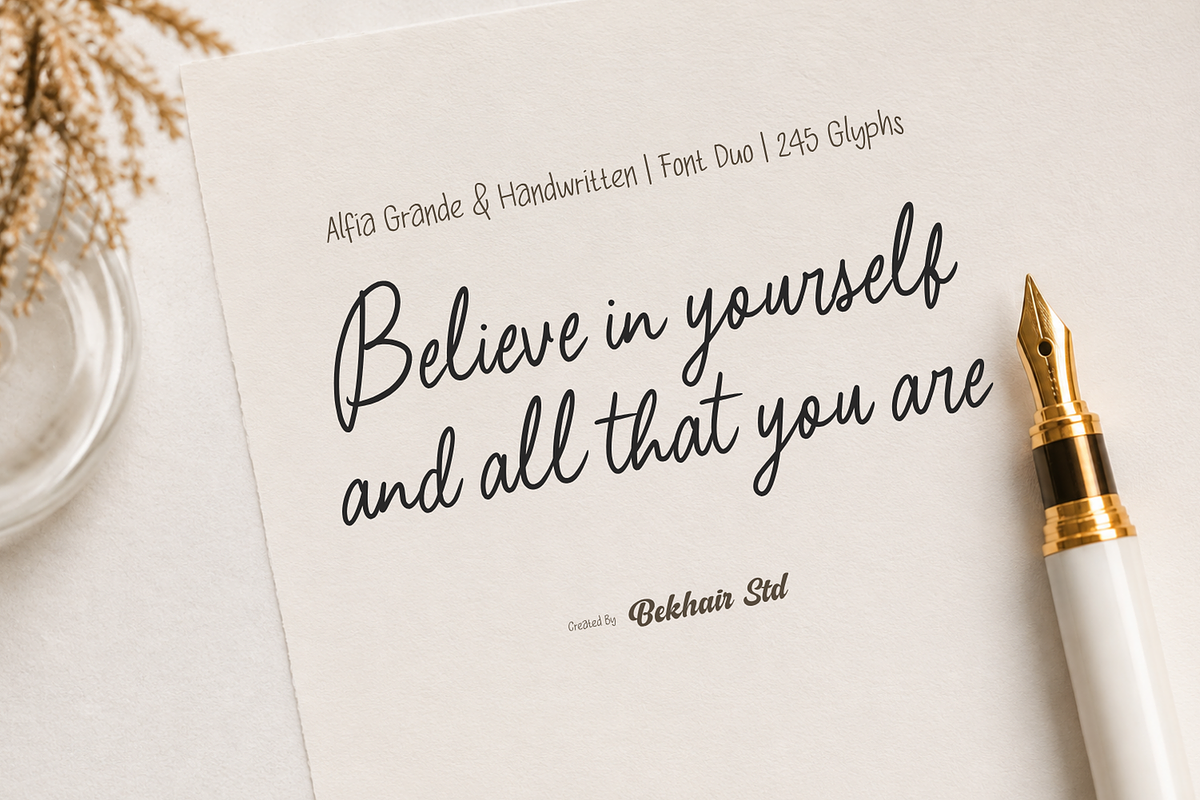 Alfia Grande & Handwritten | Font Duo | 245 Glyphs
Believe in yourself
and all that you are
Created By Bekhair Std